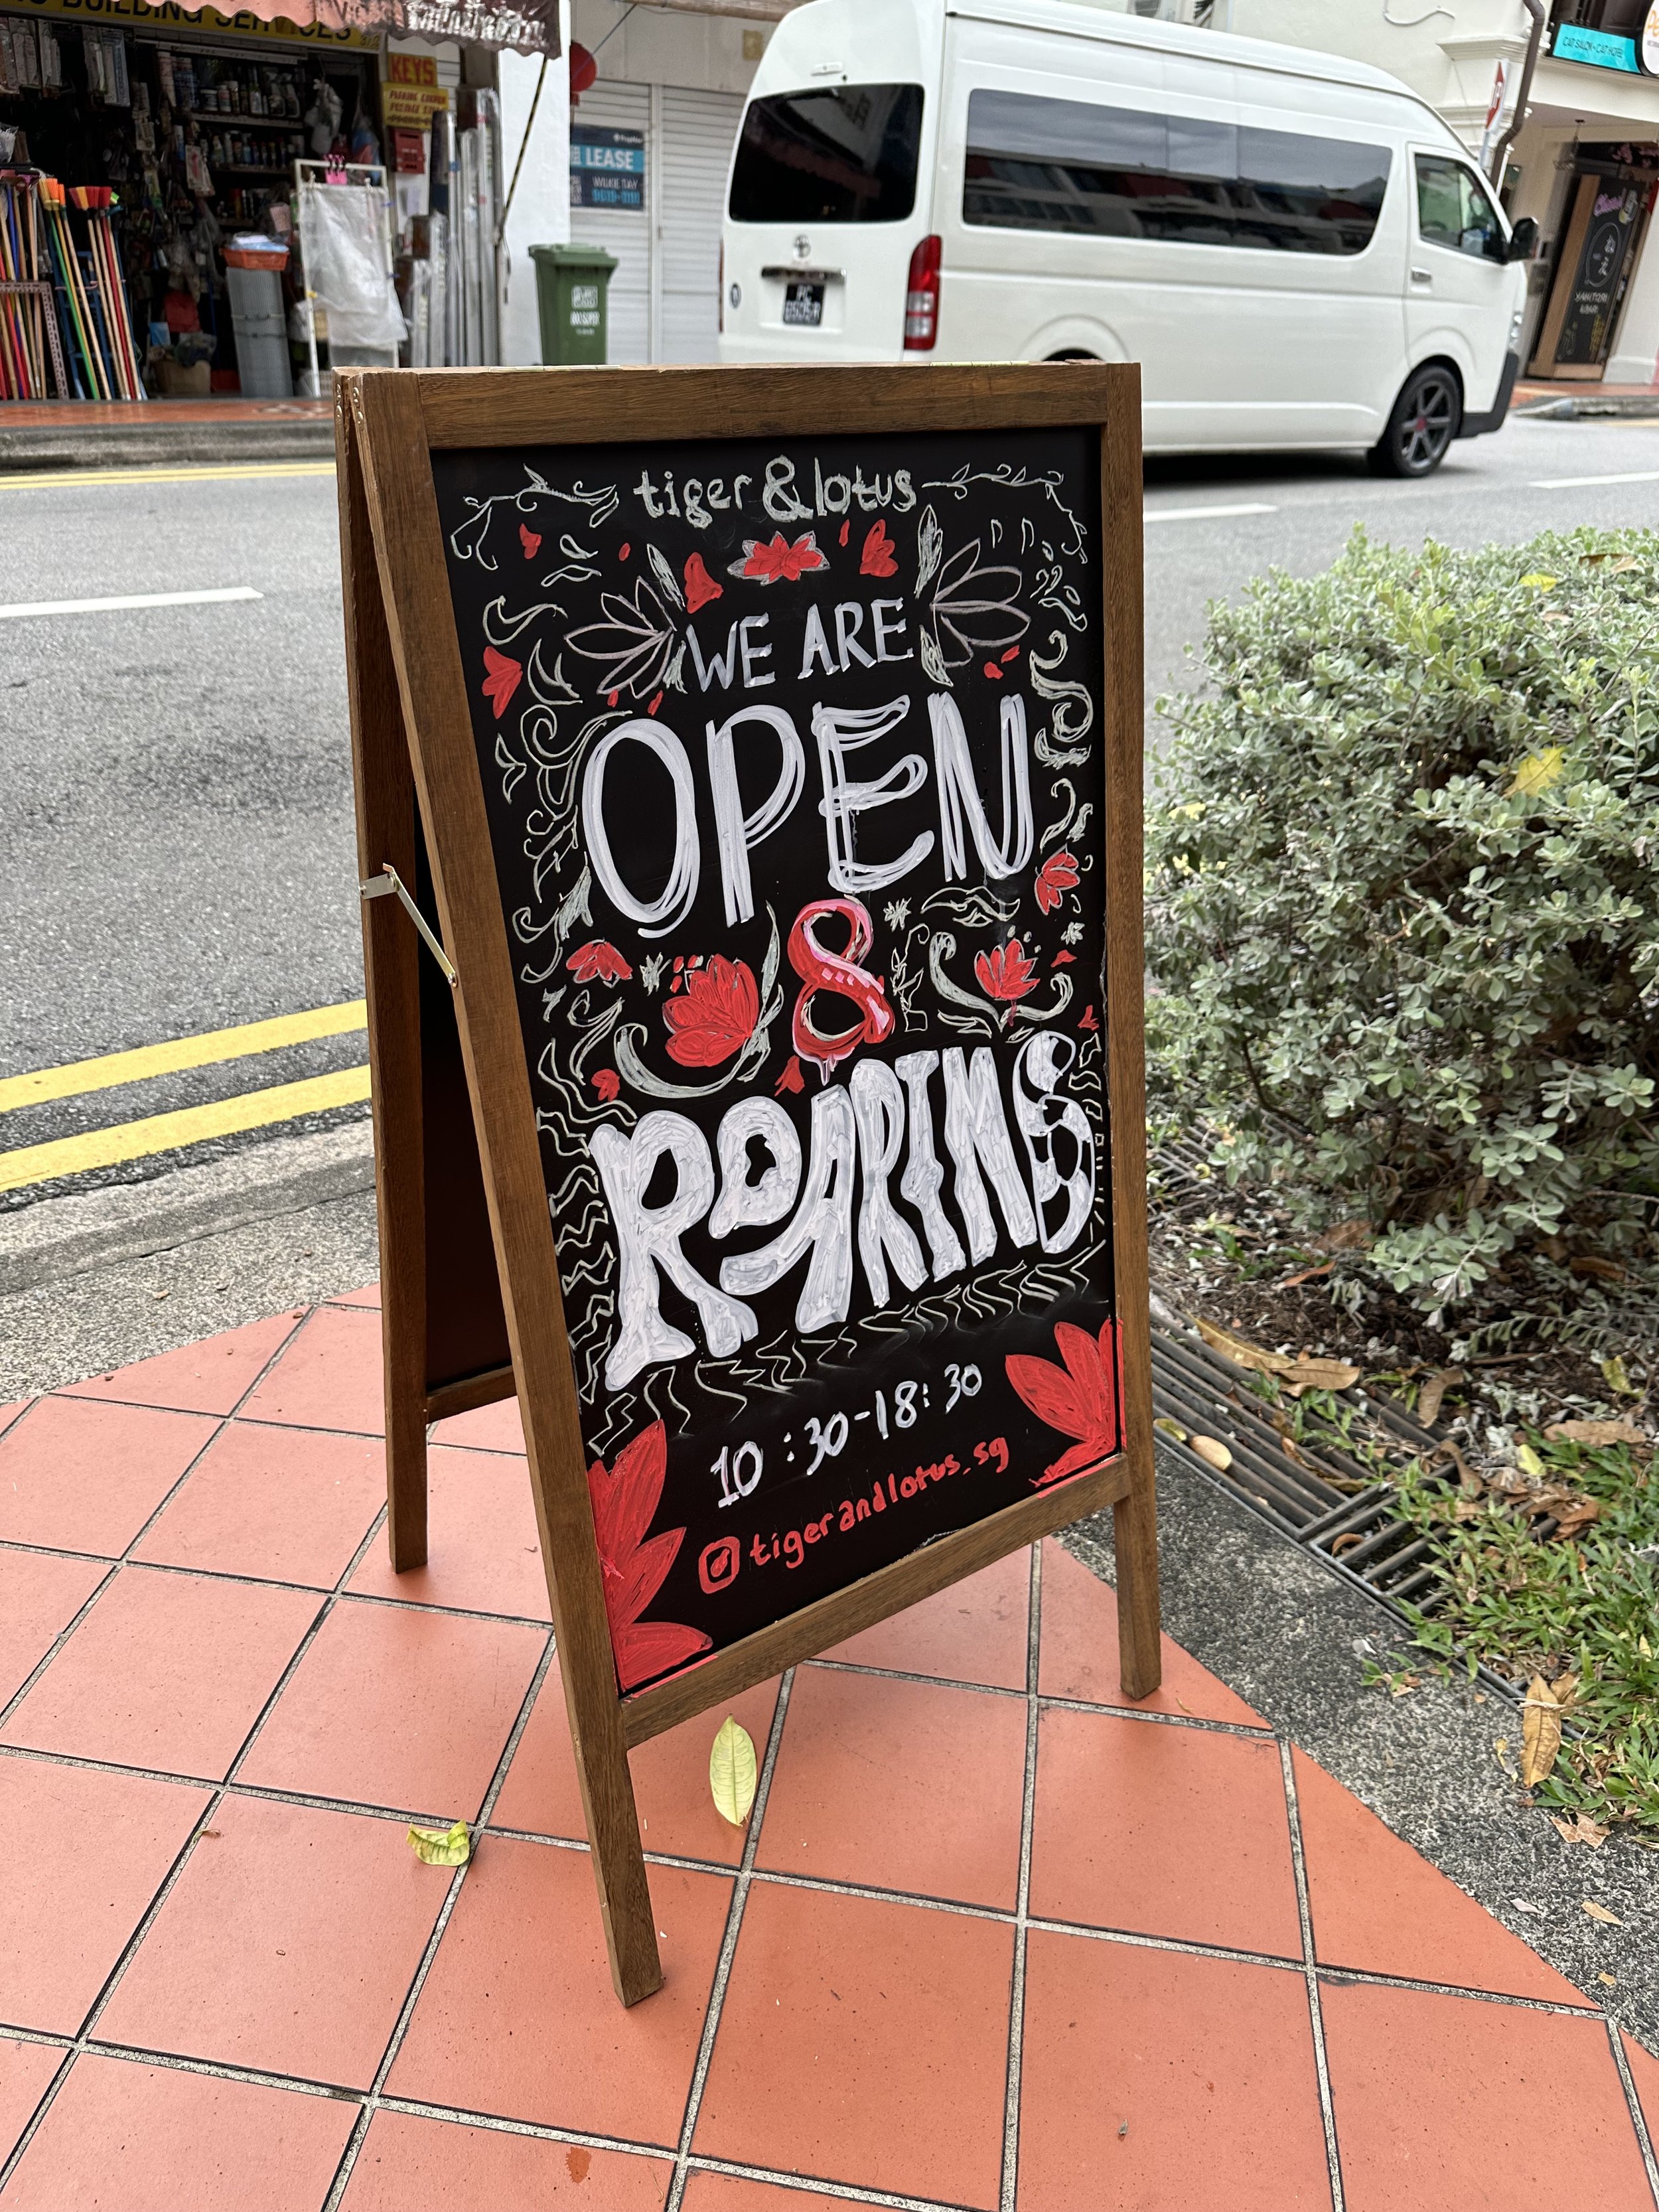 BUILDING SERVICES
KEYS
LEASE
CAT SALON - CAT HOTEL
tiger & lotus
WE ARE
OPEN
&
ROARING
10:30-18:30
tigerandlotus_sg